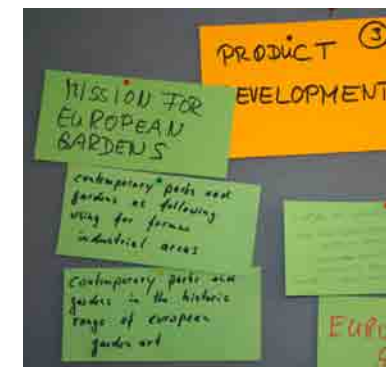 PRODUCT 3
EVELOPMENT
MISSION FOR
EUROPEAN
GARDENS
contemporary parks and
gardens as following
using for former
industrial areas
contemporary parks and
gardens in the historic
range of european
garden art
EURO
S